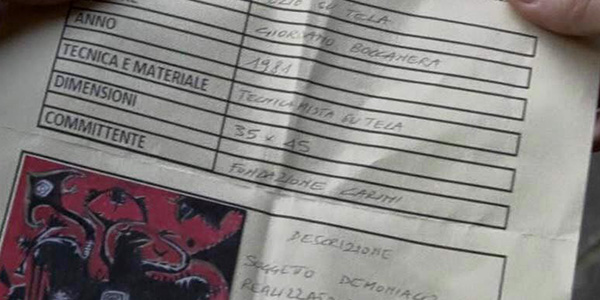 OLIO SU TELA
ANNO GIORDANO BOCCANERA
TECNICA E MATERIALE 1981
DIMENSIONI TECNICA MISTA SU TELA
COMMITTENTE 35 x 45
FONDAZIONE CARIMI
DESCRIZIONE
SOGGETTO DEMONIACO